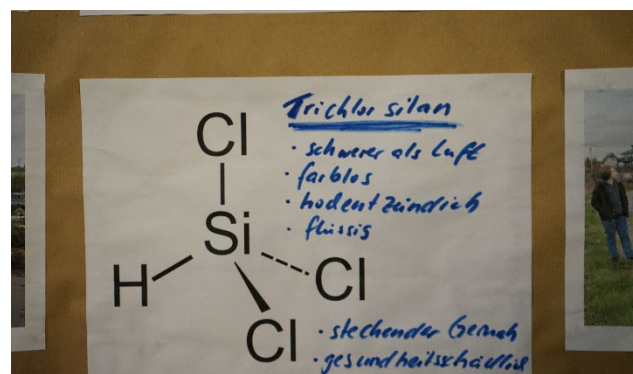 Trichlor silan
· schwerer als Luft
· farblos
· hochentzündlich
· flüssig
Cl
Si
H
Cl
Cl
· stechender Geruch
· gesundheitsschädlich